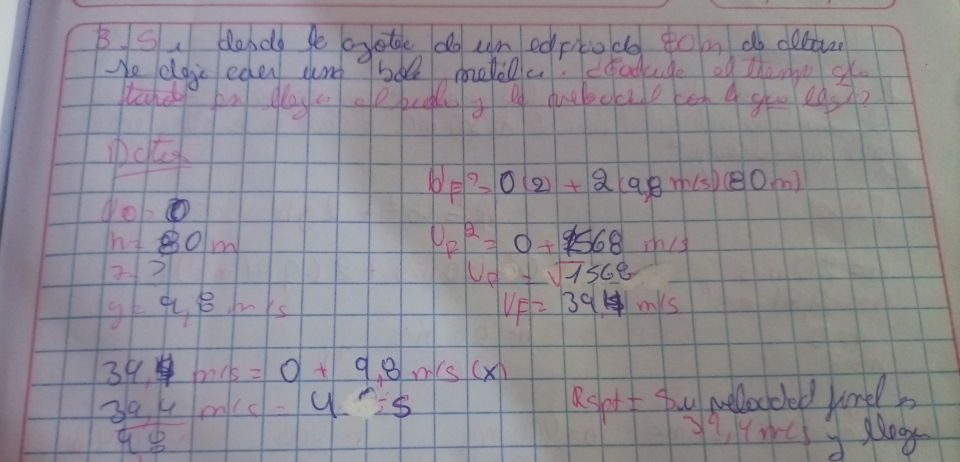 3. Si desde la azotea de un edificio de 80m de altura
se deja caer una bola metálica. ¿Calcule el tiempo que
tarda en llegar al suelo y la velocidad con la que llega?
Datos
VF²= 0(2) + 2(9,8 m/s)(80m)
Vo = 0
h= 80 m
VF² = 0 + 1568 m/s
?
VF = √1568
g= 9,8 m/s
VF= 39,4 m/s
39,4 m/s = 0 + 9,8 m/s (x)
39,4 m/s = 4 s
98
Rspt = Su velocidad final es
39,4 m/s y llega